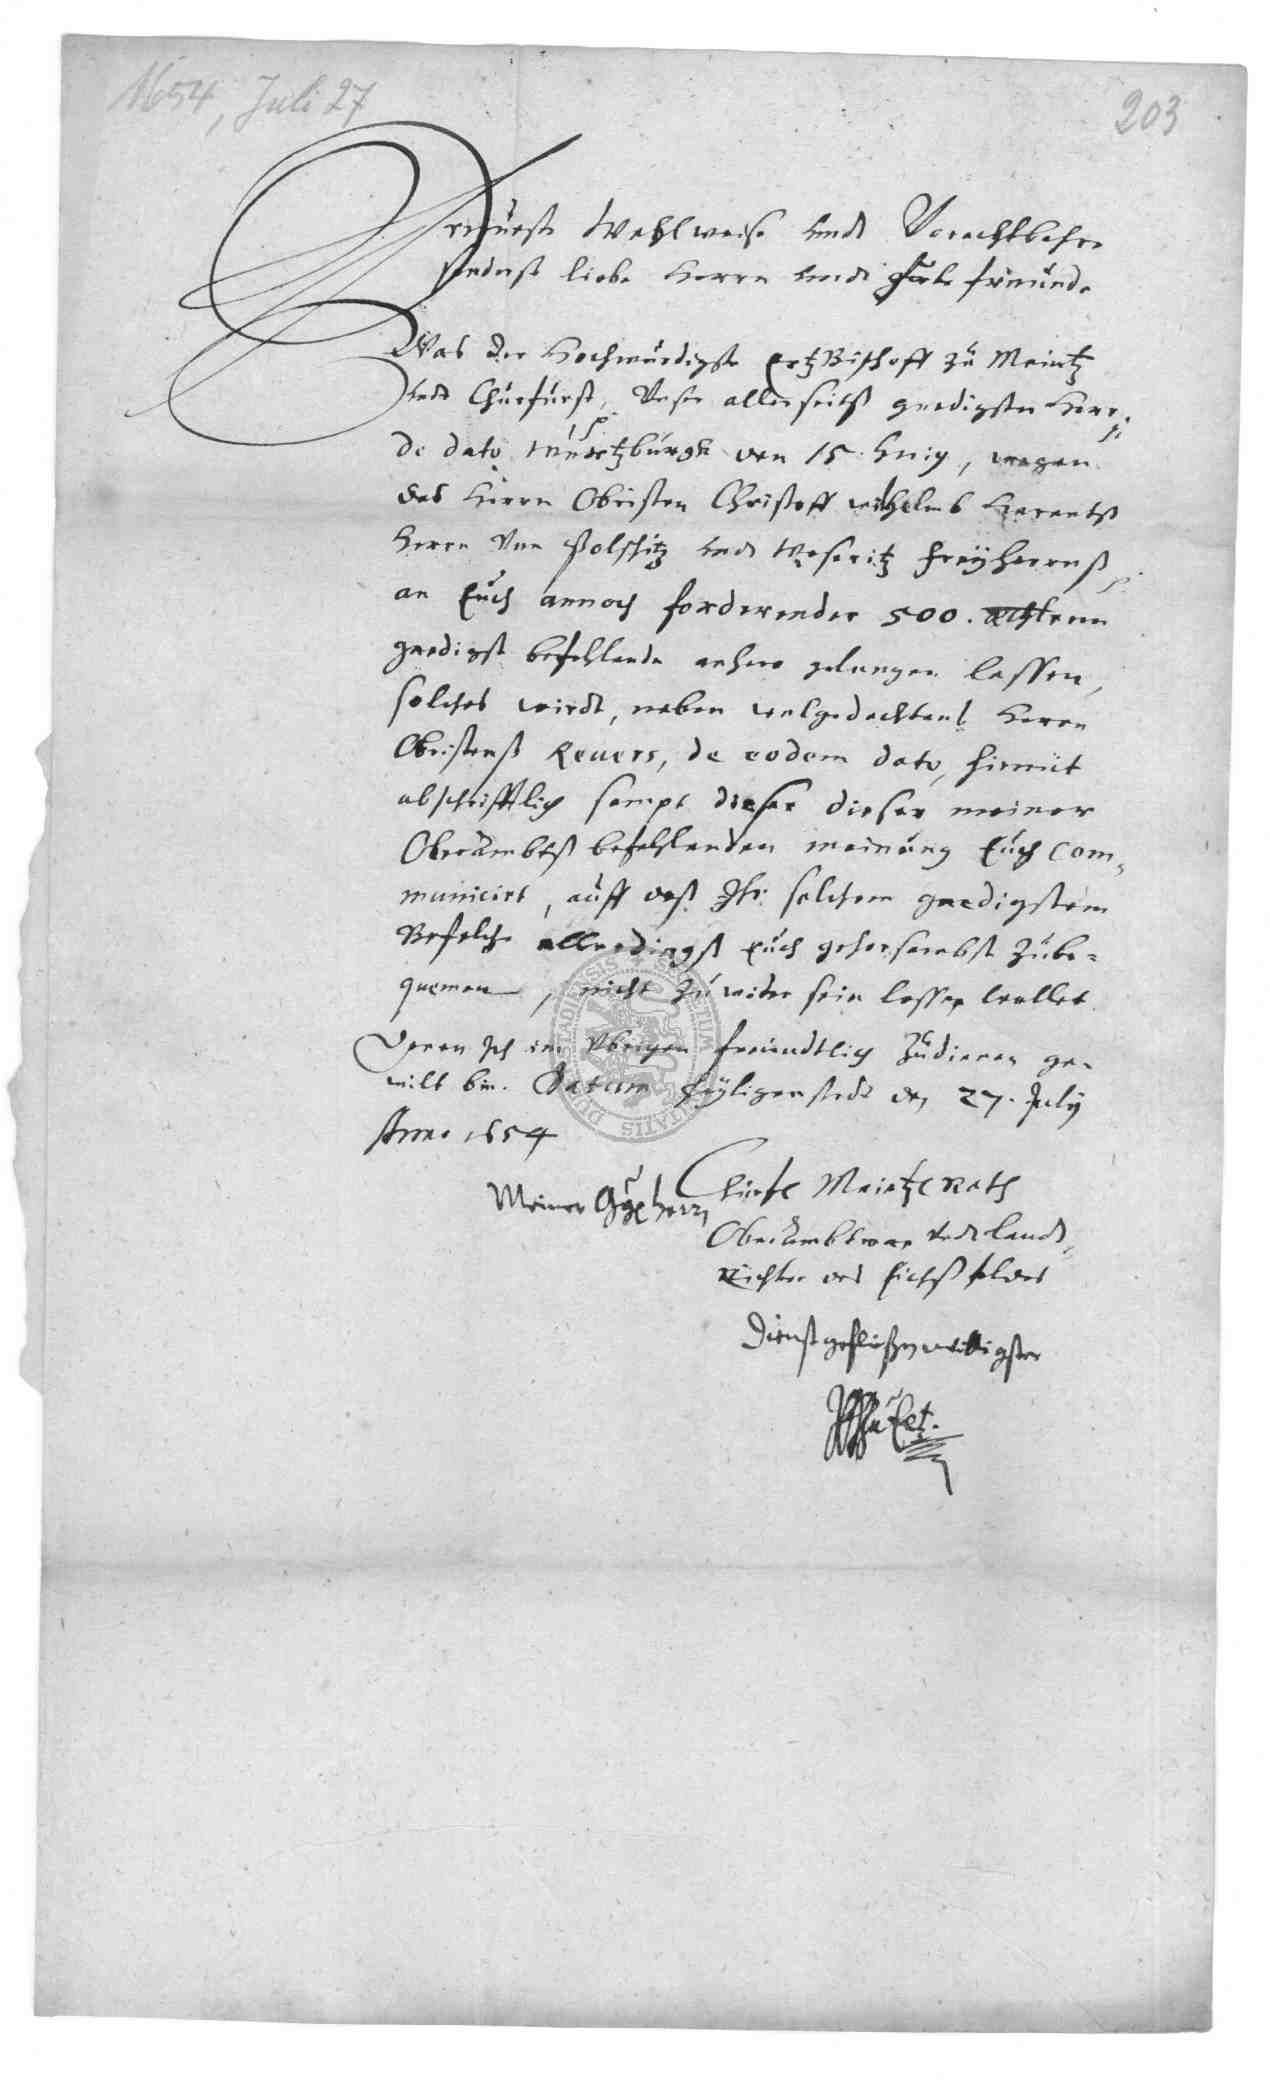 1654, Juli 27
203
Ernuest Wohlweise undt Vorachtbahre
sonderst liebe Herrn undt gute freunde
Was der Hochwürdigste ErtzBischoff zu Meintz
undt Churfürst, Unser allerseitß gnedigster Herr,
de dato Würtzburgk den 15. huig, wegen
des Herrn Obristen Christoff wilhelmb Harantß
Herrn Von Polschitz undt Weseritz freyherrnß
an Euch annoch forderender 500.
gnedigst befehlende anhero gelangen lassen,
solches wirdt, neben wolgedachtenl Herrn
Obristenß Revers, de eodem dato, hiemit
abschrifftlich sampt dieser dieser meiner
Oberambtß befehlenden meinung Euch com-
municirt, auff daß Ihr solchem gnedigstem
Befelch allerdingß Euch gehorsambst zube-
quemen, nicht zuwider sein lassen wollet
Deren Ich im Übrigen freundtlich zudienen ge-
wilt bin. Datum Heyligenstadt den 27. July
Anno 1654
Meiner Herrn
Churfl Meintzl Rath
Oberambtman undt landt
Richter des Eichßfeldes
Dienstgeflißen willigster